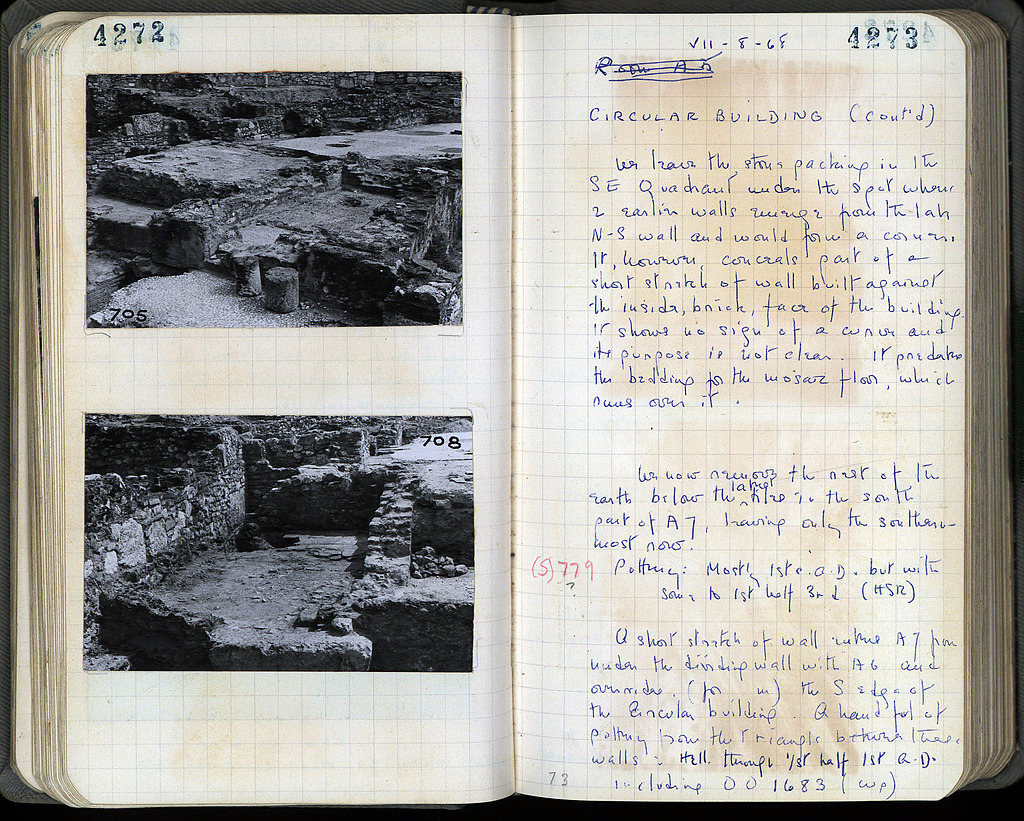 4272
705
708
4273
VII-8-68
Room A
CIRCULAR BUILDING (cont'd)
We leave the stone packing in the
SE Quadrant under the spot where
2 earlier walls emerge from the late
N-S wall and would form a corner.
It, however, conceals part of a
short stretch of wall built against
the inside, brick, face of the building.
It shows no sign of a corner and
its purpose is not clear. It predates
the bedding for the mosaic floor, which
runs over it.
We now remove the rest of the
earth below the later in the south
part of A7, leaving only the southern-
most row.
(S) 779
?
Pottery: Mostly 1st c. A.D. but with
some to 1st half 3rd (HSR)
A short stretch of wall enters A7 from
under the dividing wall with A6 and
overrides (for m) the S edge of
the Circular building. A handful of
pottery from the triangle between these
walls: Hell. through 1st half 1st A.D.
including OO 1683 (wp)
73